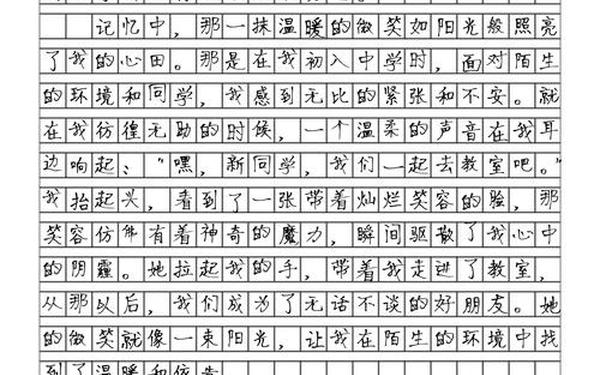 记忆中，那一抹温暖的微笑如阳光般照亮
了我的心田。那是在我初入中学时，面对陌生
的环境和同学，我感到无比的紧张和不安。就
在我彷徨无助的时候，一个温柔的声音在我耳
边响起："嘿，新同学，我们一起去教室吧。"
我抬起头，看到了一张带着灿烂笑容的脸，那
笑容仿佛有着神奇的魔力，瞬间驱散了我心中
的阴霾。她拉起我的手，带着我走进了教室，
从那以后，我们成为了无话不谈的好朋友。她
的微笑就像一束阳光，让我在陌生的环境中找
到了温暖和依靠